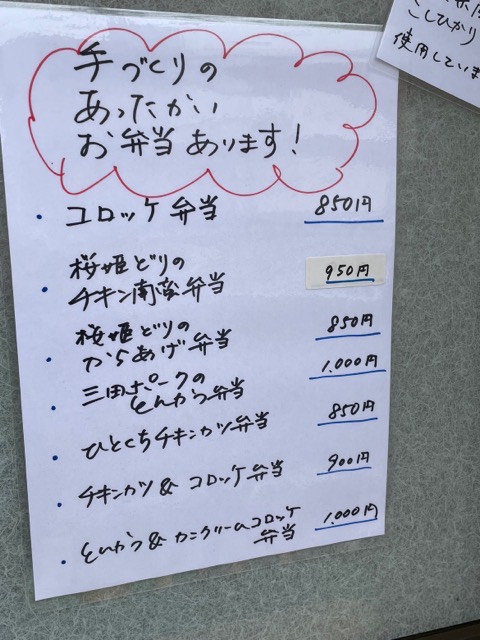 手づくりの
あったかい
お弁当あります!
・コロッケ弁当 850円
・桜姫どりの
チキン南蛮弁当 950円
・桜姫どりの
からあげ弁当 850円
・三田ポークの
とんかつ弁当 1.000円
・ひとくちチキンカツ弁当 850円
・チキンカツ& コロッケ弁当 900円
・とんかつ& カニクリームコロッケ
弁当 1.000円
こしひかり
使用していま